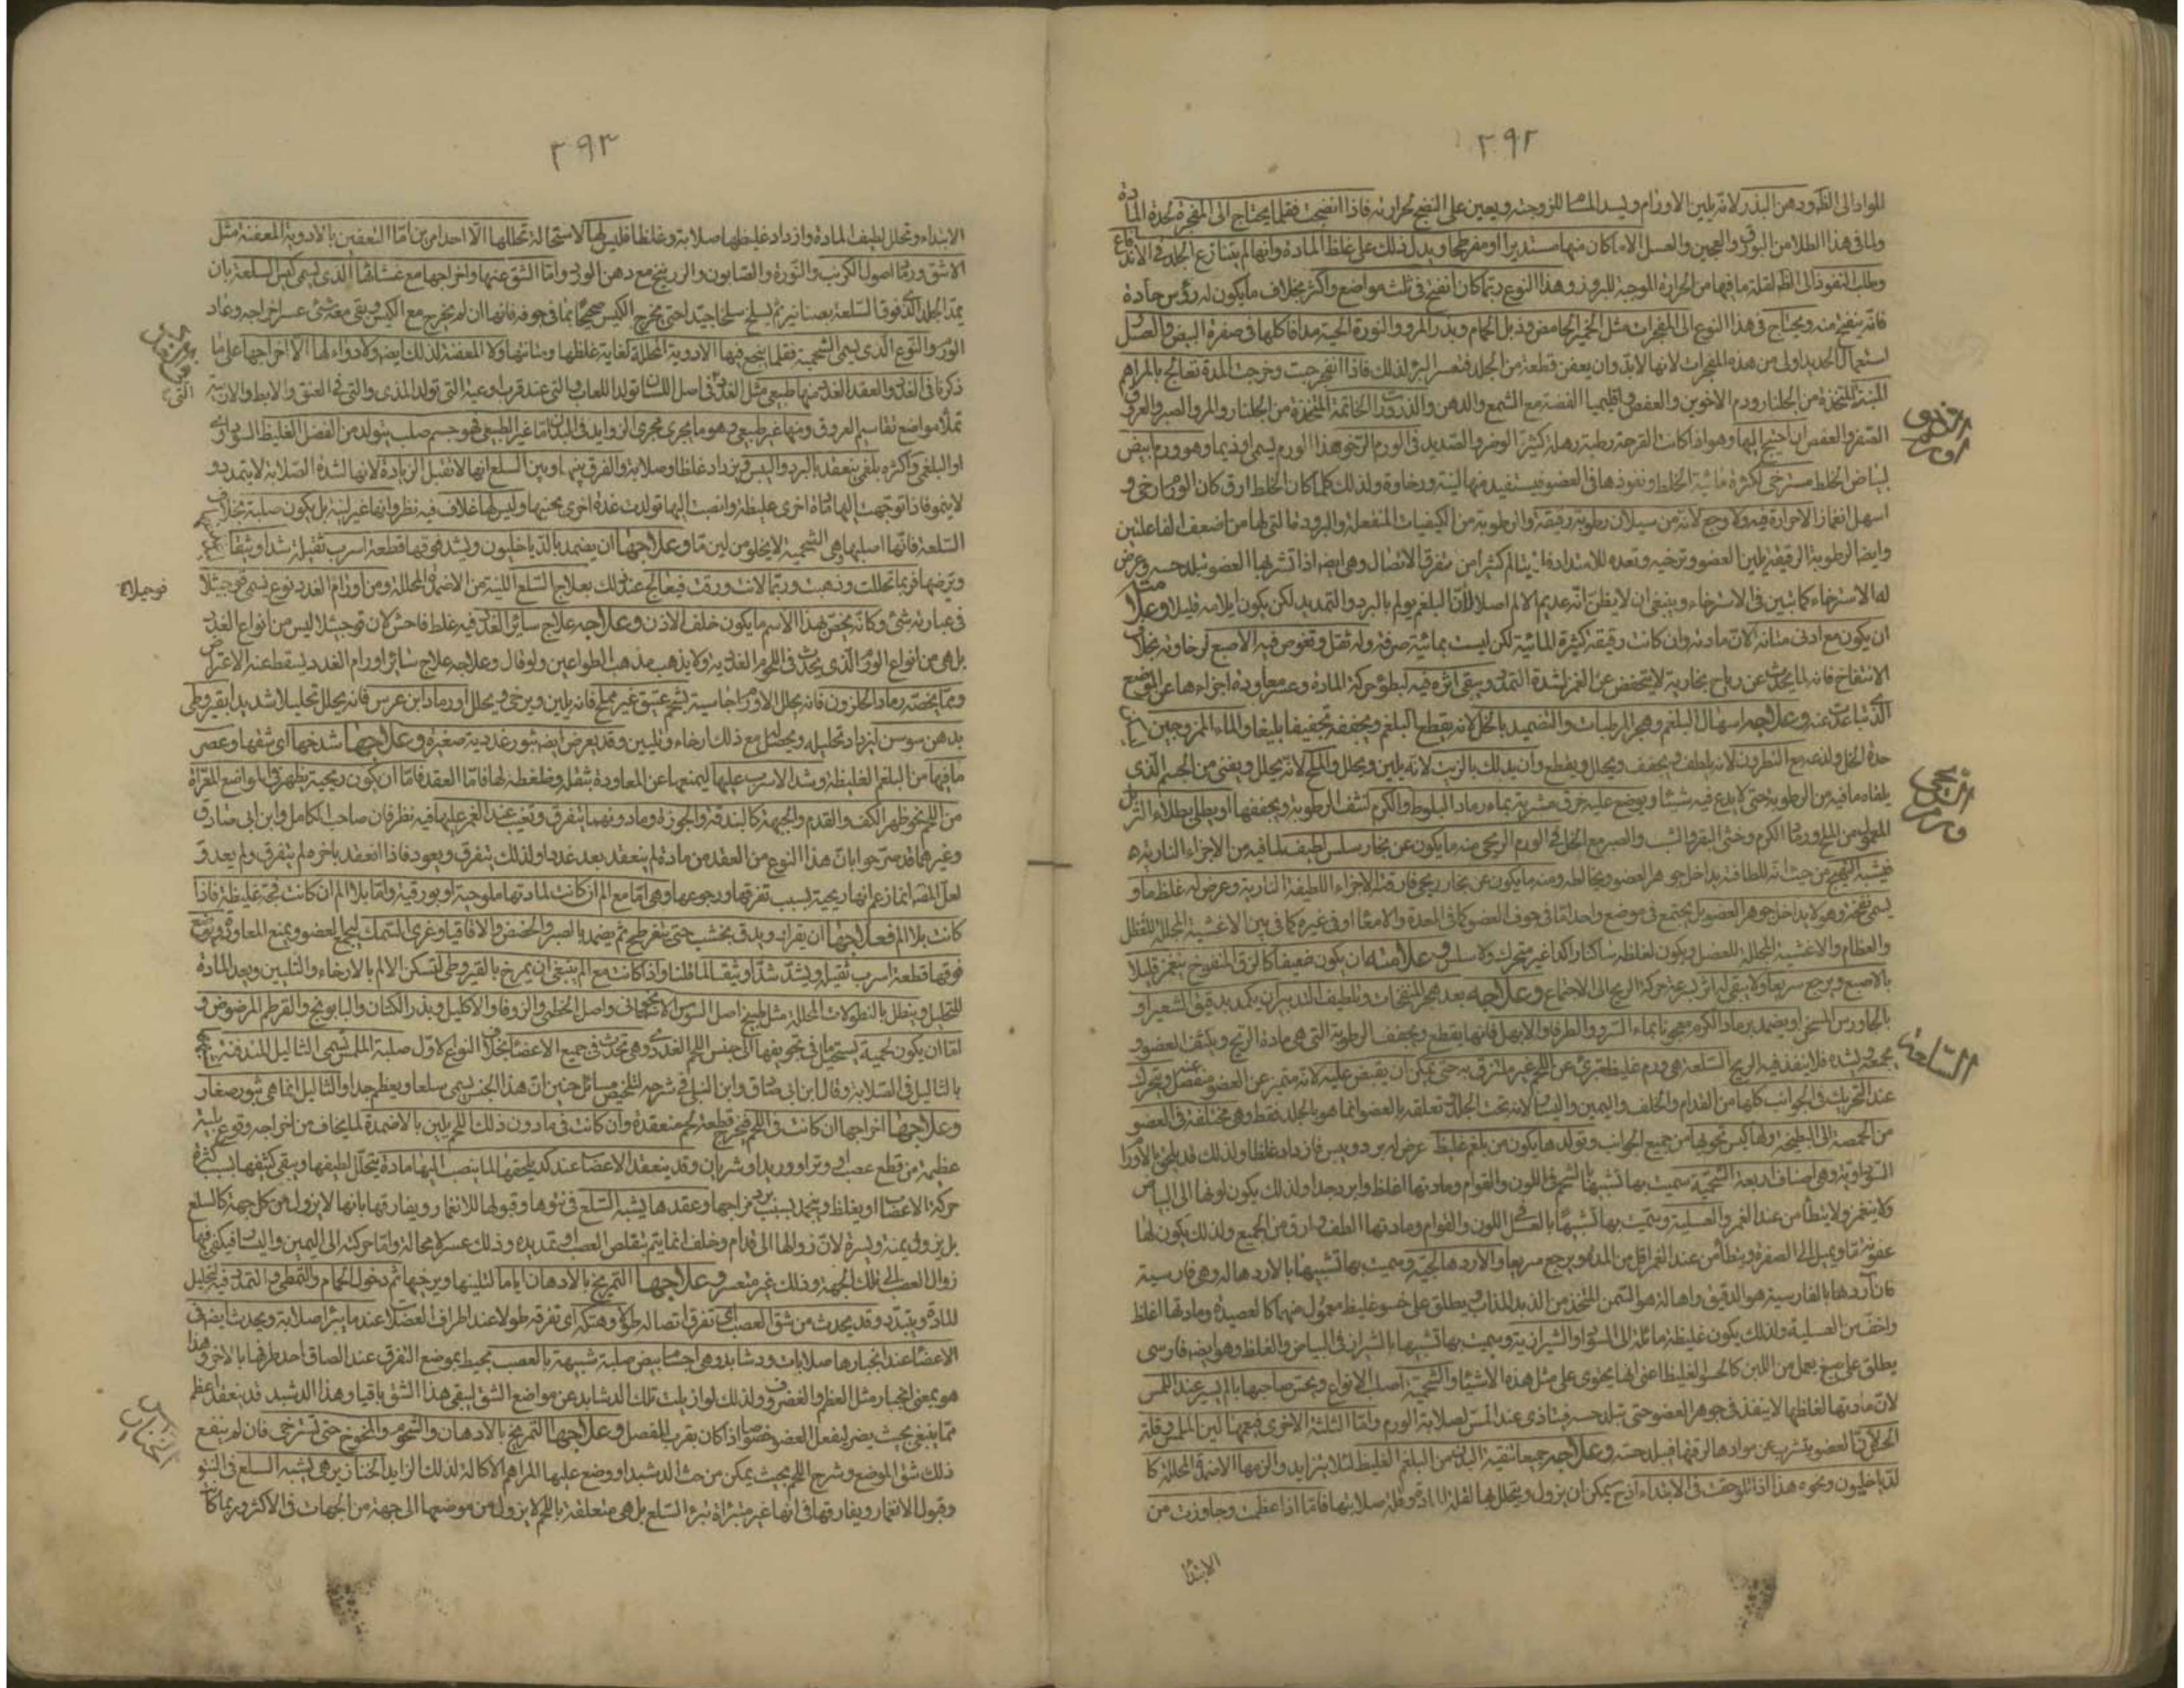 ٣٩٢
المواد الى الظ ودهن البذر لانه يلين الاورام ويسد المسام للزوجته ويعين على النضج بحرارته فاذا انضجت فقلما يحتاج الى المفجرة لحدة المادة
ولما فى هذا الطلا من البورق والعجين والعسل الا ما كان منها مستديرا او مفرطحا ويدل ذلك على غلظ المادة وانها لم يتنازع الجلد فى الاندفاع
وطلب النفوذ الى الظ لقلة ما فيها من الحرارة الموجبة للبروز وهذا النوع ربما كان انفتح فى ثلث مواضع واكثر بخلاف ما يكون له رؤس حادة
فانه ينفتح منه ويحتاج فى هذا النوع الى المفجرات مثل الخمير الحامض وذبل الحمام وبذر المرو والنورة الحية مدافا كلها فى صفرة البيض والعسل
استعمال الحديد اولى من هذه المفجرات لانها لابد وان يعفن قطعة من الجلد فتعسر البرؤ لذلك فاذا انفجرت وخرجت المدة تعالج بالمراهم
المنبتة المتخذة من الجلنار ودم الاخوين والعفص واقليميا الفضة مع الشمع والدهن والذرورات الخاتمة المتخذة من الجلنار والمر والصبر والعروق
الصفر والعفص ان احتيج اليها وهو اذا كانت القرحة رطبة رهلة كثيرة الوضر والصديد فى الورم الرخو هذا الورم يسمى اوذيما وهو ورم ابيض
لبياض الخلط مسترخى لكثرة مائية الخلط ونفوذها فى العضو فيستفيد منها لينة ورخاوة ولذلك كلما كان الخلط ارق كان الورم ارخى و
اسهل انغمازا لا حرارة فيه ولا وجع لانه من سيلان رطوبة رقيقة والرطوبة من الكيفيات المنفعلة والبرودة التى لها من اضعف الفاعلتين
وايضا الرطوبة الرقيقة يلين العضو وترخيه وتعده للامتداد فلا يتالم كثيرا من تفرق الاتصال وهى ايضا اذا تشربها العضو تبلد حسه وعرض
له الاسترخاء كما تبين فى الاسترخاء وينبغى ان لا يظن انه عديم الالم اصلا لان البلغم يولم بالبرد والتمديد لكن يكون ايلامه قليلا وعلامته
ان يكون مع ادنى متانة لان مادته وان كانت رقيقة كثيرة المائية لكن ليست بمائية صرفة وله ثقل وتغوص فيه الاصبع لرخاوته بخلاف
الانتفاخ فانه لما يحدث عن رياح بخارية لا ينخفض عن الغمز لشدة التمدد ويبقى اثره فيه لبطؤ حركة المادة وعسر معاودة اجزاءها عن الموضع
الذى تباعدت عنه وعلاجه اسهال البلغم وهجر المرطبات والتضميد بالخل لانه يقطع البلغم ويجففه تجفيفا بليغا والماء الممزوجين
حدة الخل ولذعه مع النطرون لانه يلطف ويجفف ويحلل ويقطع وان يدلك بالزيت لانه يلين ويحلل والملح لانه يحلل ويفنى من الجسم الذى
يلقاه ما فيه من الرطوبة حتى لا يدع فيه شيئا ويوضع عليه خرق مشربة بماء رماد البلوط والكرم لتنشف الرطوبة ويجففها او يطلى بطلاء التربل
المعمول من الملح ورماد الكرم وخثى البقر والشب والصبر مع الخل فى الورم الريحى منه ما يكون عن بخار سلس لطيف لما فيه من الاجزاء النارية
فيشبه التهبج من حيث انه للطافته يداخل جوهر العضو ويخالطه ومنه ما يكون عن بخار ريحى فارقته الاجزاء اللطيفة النارية وعرض له غلظ ما و
يسمى نفخة وهو لا يداخل جوهر العضو بل يجتمع فى موضع واحد اما فى جوف العضو كما فى المعدة والامعاء او فى غيره كما فى بين الاغشية المجللة للفضل
والعظام والاغشية المجللة للعضل ويكون لغلظه ساكنا راكدا غير متحرك ولا سلس وعلامته ان يكون خفيفا كالزق المنفوخ ينغمز قليلا
بالاصبع ويرجع سريعا ولا يبقى له اثر لسرعة حركة الريح الى الاجتماع وعلاجه بعد هجر المنفخات وتلطيف التدبير ان يكمد بدقيق الشعير او
بالجاورس المسخن او يضمد برماد الكرم معجونا بماء السرو والطرفا والابهل فانها يقطع ويجفف الرطوبة التى هى مادة الريح ويكثف العضو و
يجمعه ويشده فلا ينفذ فيه الريح السلعة هى ورم غليظ متبرئ عن اللحم غير ملتزق به حتى يمكن ان يقبض عليه لانه متميز عن العضو منفصل عنه ويتحرك
عند التحريك فى الجوانب كلها من القدام والخلف واليمين واليسار لانه تحت الجلد وتعلقه بالعضو انما هو بالجلد فقط وهى مختلفة فى العضو
من الحمصة الى البطيخة ولها كيس تحويها من جميع الجوانب وتولدها يكون من بلغم غليظ عرض له برد ويبس فازداد غلظا ولذلك قد يلحق بالاورام
السوداوية وهى اصناف اربعة الشحمية سميت بها تشبيها بالشحم فى اللون والقوام ومادتها اغلظ وابرد جدا ولذلك يكون لونها الى البياض
ولا ينغمز ولا يتطأمن عند الغمز والعسلية وسميت بها تشبيها بالعسل فى اللون والقوام ومادتها الطف وارق من الجميع ولذلك يكون لها
عفونة ما ويميل الى الصفرة ويتطأمن عند الغمز اقل من المدة ويرجع سريعا والاردهالجية وسميت بها تشبيها بالاردهاله وهى فارسية
فان آرد هنا بالفارسية هو الدقيق واهاله هو السمن المتخذ من الزبد المذاب ويطلق على حسو غليظ معمول منهما كالعصيدة ومادتها اغلظ
واخف من العسلية ولذلك يكون غليظة مائلة الى السواد والشيرازية وسميت بها تشبيها بالشيراز فى البياض والغلظ وهو ايضا فارسى
يطلق على صبغ يعمل من اللبن كالحسو الغليظ اعنى انها يحتوى على مثل هذه الاشياء والشحمية اصلب الانواع ويحس صاحبها بالم يسير عند اللمس
لان مادتها لغلظها لا ينفذ فى جوهر العضو حتى تبلد حسه فيتاذى عند المس لصلابة الورم واما الثلثة الاخرى فيعمها لين الملمس وقلة
الحس لان العضو يتشرب من موادها لرقتها فيبلد حسه وعلاجه جميعا تنقية البدن من البلغم الغليظ لئلا يتزايد والزمها الاضمدة المحللة كا
لدياخليون ونحوه هذا اذا تلوحقت فى الابتداء اذ ح يمكن ان يزول ويتحلل بها لقلة المادة وقلة صلابتها فاما اذا عظمت وجاوزت من
الابتداء
الورم الرخو
ورم ريحى
السلعة
٣٩٣
الابتداء وتحلل لطيف المادة وازداد غليظها صلابة وغلظا فليس لها لاستحالة تحللها الا احد امرين اما التعفين بالادوية المعفنة مثل
الاشق ورماد اصول الكرنب والنورة والصابون والزرنيخ مع دهن الورد واما الشق عنها واخراجها مع غشائها الذى يسمى كيس السلعة بان
يمد الجلد الذى فوق السلعة بصنانير ثم يسلخ سلخا جيدا حتى يخرج الكيس صحيحا بما فى جوفه فانها ان لم يخرج مع الكيس وبقى معه شئ عسر اخراجه وعاد
الورم والنوع الذى يسمى الشحمية فقلما ينجع فيها الادوية المحللة لغاية غلظها ومتانتها ولا المعفنة لذلك ايضا ولا دواء لها الا اخراجها على ما
ذكرنا فى الغدد والعقد الغدد منها طبيعى مثل الغدد التى فى اصل اللسان تولد اللعاب والتى عند قرب اوعية التى تولد المذى والتى فى العنق والابط والاربية
تملأ مواضع تقاسيم العروق ومنها غير طبيعى وهو ما يجرى مجرى الزوايد فى البدن اما غير الطبيعى فهو جسم صلب يتولد من الفضل الغليظ السوداوى
او البلغمى واكثره بلغمى ينعقد بالبرد واليبس ويزداد غلظا وصلابة والفرق بينها وبين السلع انها لا تقبل الزيادة لانها لشدة الصلابة لا يتمدد و
لا ينمو فاذا توجهت اليها مادة اخرى غليظة وانصبت اليها تولدت غدة اخرى بجنبها وليس لها غلاف فيه نظر وانها غير لينة بل يكون صلبة بخلاف
السلعة فانها اصلبها هى الشحمية لا يخلو من لين ما وعلاجها ان يضمد بالدياخليون ويشد فوقها قطعة اسرب ثقيلة شدا وثيقا
ويترضها فربما تحللت وذهبت وربما لانت ورقت فيعالج عند ذلك بعلاج السلع اللينة من الاضمدة المحللة ومن اورام الغدد نوع يسمى فوجثلا
فى عبارته شئ وكانه يخص بهذا الاسم ما يكون خلف الاذن وعلاجه علاج سائر الغدد فيه غلط فاحش لان فوجثلا ليس من انواع الغدد
بل هى من انواع الورم الذى يحدث فى اللحوم الغددية ولا يذهب مذهب الطواعين ولو قال وعلاجه علاج سائر اورام الغدد ليسقط عنه الاعتراض
ومما يخصه رماد الحلزون فانه يحلل الاورام الجاسية بشحم عتيق غير مملح فانه يلين ويرخى ويحلل او رماد ابن عرس فانه يحلل تحليلا شديدا بقيروطى
بدهن سوسن ليزداد تحليله ويحصل مع ذلك ارخاء وتليين وقد يعرض ايضا بثور غددية صغيرة وعلاجها شدخها اى شقها وعصر
ما فيها من البلغم الغليظة وشد الاسرب عليها ليمنعها عن المعاودة بثقله وظغطه لها فاما العقد فاما ان يكون ريحية يظهر فى المواضع المعراة
من اللحم نحو ظهر الكف والقدم والجبهة كالبندقة والجوزة وما دونهما يتفرق وتغيب عند الغمز عليها فيه نظر فان صاحب الكامل وابن ابى صادق
وغيرهما قد صرحوا بان هذا النوع من العقد من مادة لم ينعقد بعد غددا ولذلك يتفرق ويعود فاذا انعقد باخره لم يتفرق ولم يعد و
لعل المصنف انما زعم انها ريحية بسبب تفرقها ورجوعها وهى اما مع الم ان كانت لمادتها ملوحية او بورقية واما بلا الم ان كانت فجة غليظة فاذا
كانت بلا الم فعلاجها ان يقران ويدق بخشب حتى يتفرطح ثم يضمد بالصبر والحضض والاقاقيا وغرى السمك ليجمع العضو ويمنع المعاودة ويوضع
فوقها قطعة اسرب ثقيلة ويشد شدا وثيقا لما قلنا واذا كانت مع الم ينبغى ان يمرخ بالقيروطى لتسكن الالم بالارخاء والتليين وبعد المادة
للتحليل وينطل بالنطولات المحللة مثل طبيخ اصل السوس الاسمانجونى واصل الخطمى والزوفا والاكليل وبذر الكتان والبابونج والقرطم المرضوض و
اما ان يكون لحمية يستحيل ما فى تجويفها الى جنس اللحم الغددى وهى تحدث فى جميع الاعضاء بخلاف النوع الاول صلبة الملمس يسمى الثاليل المندفنة
بالثاليل فى الصلابة وقال ابن ابى صادق وابن النبلى فى شرحه لتلخيص مسائل حنين ان هذا الجنس يسمى سلعا ويعظم جدا والثاليل انما هى بثور صغار
وعلاجها اخراجها ان كانت فى اللحم فيخرج قطعة لحم منعقدة وان كانت فى ما دون ذلك اللحم يلين بالاضمدة لما يخاف من اخراجه وقوع بلية
عظيمة من قطع عصب او وتر او وريد او شريان وقد ينعقد الاعضاء عند كد يلحقها لما ينصب اليها مادة يتحلل لطيفها ويبقى كثيفها بسبب كثرة
حركة الاعضاء او يغلظ وينجمد بسبب برد مزاجها وعقدها يشبه السلع فى نتوها وقبولها للانغماز ويفارقها بانها لا يزول من كل جهة كالسلع
بل يزول يمنة ويسرة لان زوالها الى قدام وخلف انما يتم بتقلص العصب او تمديده وذلك عسر لا محالة واما حركته الى اليمين واليسار فيكفى فيها
زوال العصب الى تلك الجهة وذلك غير متعسر وعلاجها التمريخ بالادهان اياما لتلينها ويرخيها ثم دخول الحمام والتمطى والتمدد فيه لتحليل
المادة ويتبدد وقد يحدث من شق العصب اى تفرق اتصاله طولا وهتكه اى تفرقه طولا عند اطراف العضلات عند ما يبرأ صلابة ويحدث ايضا فى
الاعضاء عند انجبارها صلابات ودشابد وهى اجسام بيض صلبة شبيهة بالعصب يحيط بموضع التفرق عند الصاق احد طرفها بالاخر وهذا
هو بمعنى انجبار مثل العظم والغضروف ولذلك لو ازيلت تلك الدشابد عن مواضع الشق ليبقى هذا الشق باقيا وهذا الدشبد قد ينعقد اعظم
مما ينبغى بحيث يضر بفعل العضو خصوصا اذا كان بقرب المفصل وعلاجها التمريخ بالادهان والشحوم والمخوخ حتى تسترخى فان لم ينفع
ذلك شق الموضع وشرح اللحم بحيث يمكن من حث الدشبد او وضع عليها المراهم الاكالة لذلك الزايد الخنازير هى يشبه السلع فى النتو
وقبول الانغماز ويفارقها فى انها غير متبرأة تبرؤ السلع بل هى متعلقة باللحم لا يزول من موضعها الى جهة من الجهات فى الاكثر وربما كان
الخنازير